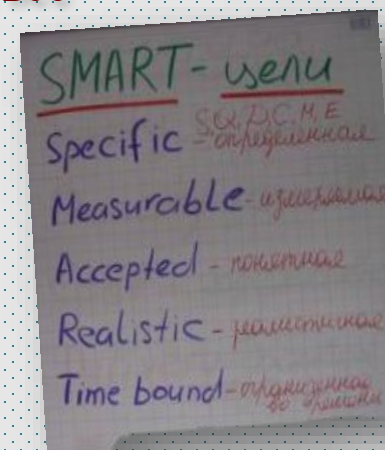 SMART - цели
S, Q, D, C, M, E
Specific - определенная
Measurable - измеряемая
Accepted - понятная
Realistic - реалистичная
Time bound - ограниченная
во времени